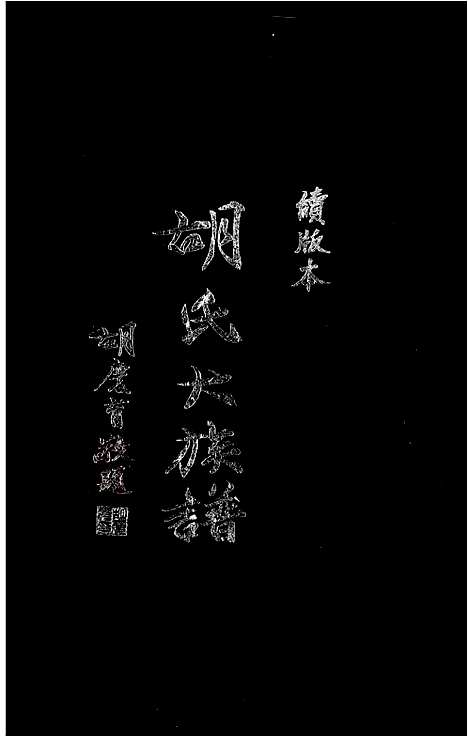 續版本
胡氏大族譜
胡慶首敬題